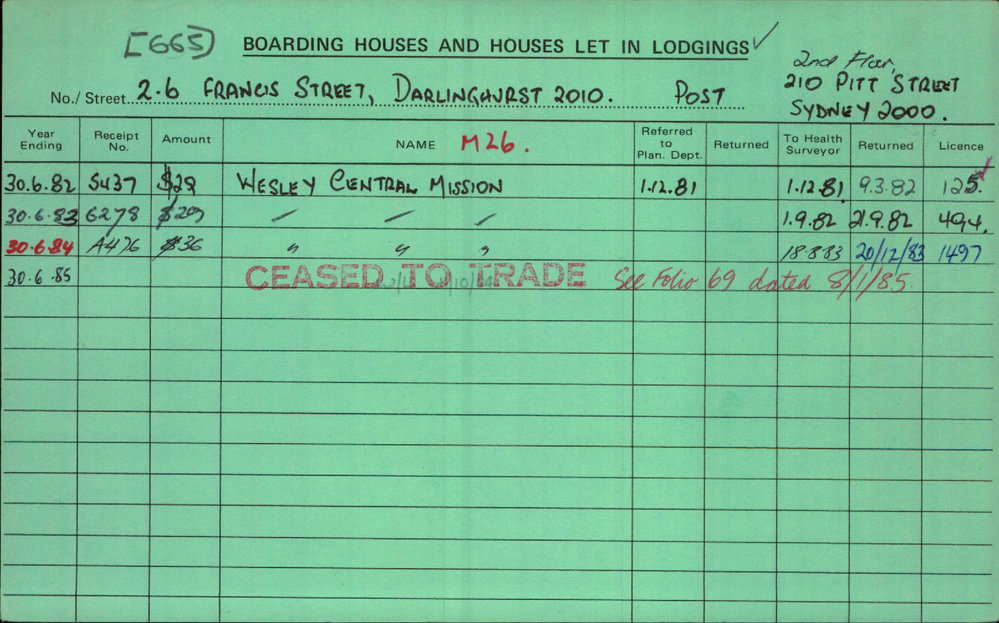 [665] BOARDING HOUSES AND HOUSES LET IN LODGINGS ✓
2nd Floor,
No./ Street 2-6 FRANCIS STREET, DARLINGHURST 2010. POST 210 PITT STREET
SYDNEY 2000.
Year Ending Receipt No. Amount NAME M26. Referred to Plan. Dept. Returned To Health Surveyor Returned Licence
30.6.82 5437 $29 WESLEY CENTRAL MISSION 1.12.81 1.12.81 9.3.82 125.
30.6.83 6278 $29 " " " 1.9.82 21.9.82 494.
30.6.84 A476 $36 " " " 18.8.83 20/12/83 1497
30.6.85 CEASED TO TRADE See Folio 69 dated 8/1/85.